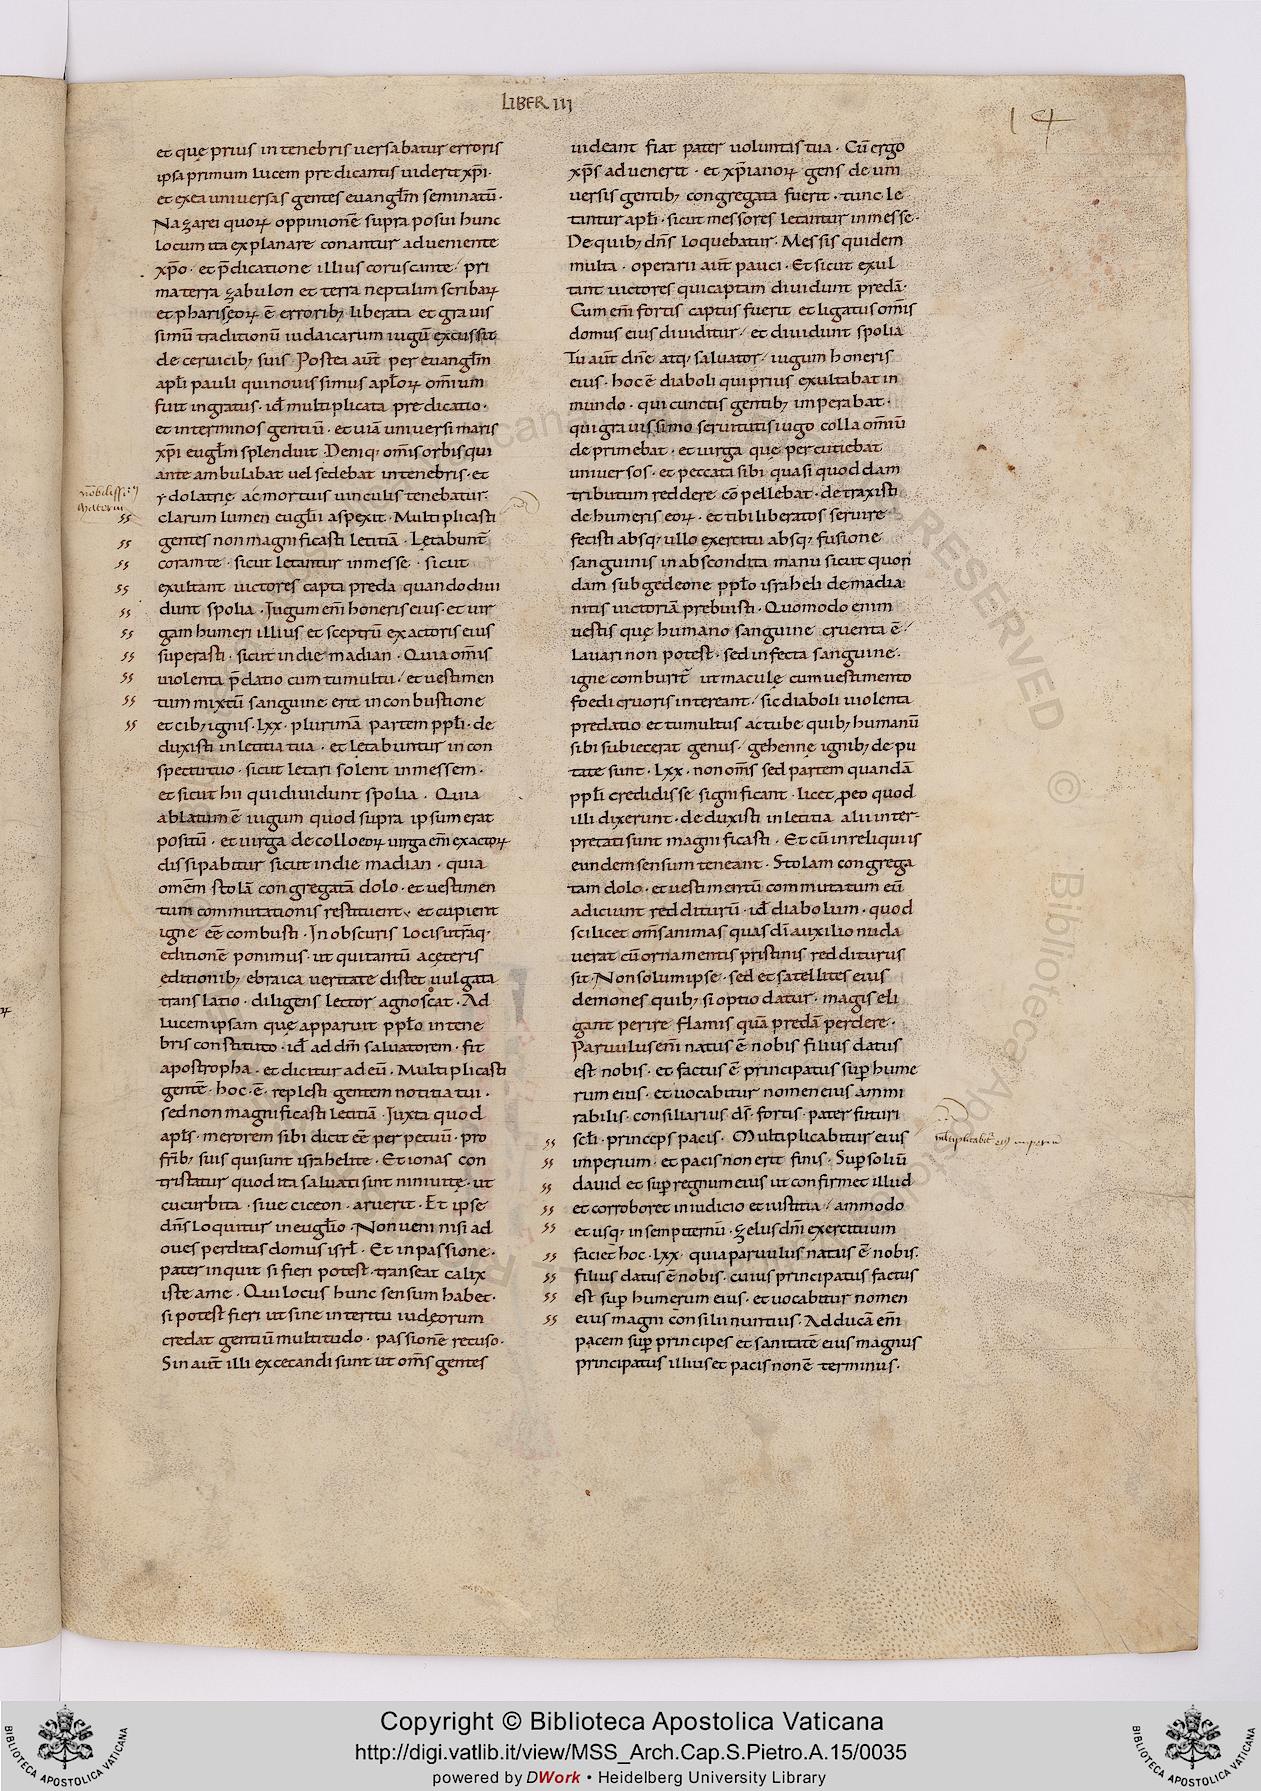 LIBER III
14
et quę prius in tenebris uersabatur erroris
ipsa primum lucem predicantis uiderit xp̅i·
et ex ea uniuersas gentes euanglm̅ seminatū·
Nazarei quoꝝ oppinionē supra posui hunc
locum ita explanare conantur adueniente
xp̅o· et p̄dicatione illius coruscante· pri
ma terra zabulon et terra neptalim scribaꝝ
et phariseoꝝ ē erroribꝫ liberata et grauis
simū traditionū iudaicarum iugū excussit
de ceruicibꝫ suis Postea aut̅ per euanglm̅
apl̅i pauli qui nouissimus apl̅oꝝ om̅ium
fuit ingratus· id̅ multiplicata predicatio·
et in terminos gentiū· et uiā uniuersi maris
xp̅i euglm̅ splenduit· Deniq· om̅is orbis qui
ante ambulabat uel sedebat in tenebris· et
ydolatrię ac mortuis uinculis tenebatur·
clarum lumen euglii aspexit· Multiplicasti
gentes non magnificasti letitiā· Lętabunt̅
coram te· sicut letantur in messe· sicut
exultant uictores capta preda quando diui
dunt spolia· Jugum em̅ honeris eius· et uir
gam humeri illius et sceptrū exactoris eius
superasti· sicut in die madian· Quia om̅is
uiolenta p̄datio cum tumultu· et uestimen
tum mixtū sanguine erit in conbustione
et cibꝫ ignis· lxx· plurimā partem ppl̅i· de
duxisti in letitia tua· et lętabuntur in con
spectu tuo· sicut letari solent in messem·
et sicut hii qui diuidunt spolia· Quia
ablatum ē iugum quod supra ipsum erat
positū· et uirga de collo eoꝝ uirga em̅ exactoꝝ
dissipabitur sicut in die madian· quia
omēm stolā congregatā dolo· et uestimen
tum commutationis restituent· et cupient
igne eē combusti· In obscuris locis utrāq·
editionē ponimus· ut quitantū a ceteris
editionibꝫ ebraica ueritate distet uulgata
translatio· diligens lector agnoscat· Ad
lucem ipsam quę apparuit ppl̅o in tene
bris constituto· id̅ ad dm̅ saluatorem· fit
apostropha· et dicitur ad eū· Multiplicasti
gentē· hoc· ē· replesti gentem notitia tui·
sed non magnificasti letitiā· Juxta quod
apl̅s· merorem sibi dicit eē perpetuū· pro
frībꝫ suis qui sunt israhelite· Et ionas con
tristatur quod ita saluati sint niniuitę· ut
cucurbita· siue ciceon· aruerit· Et ipse
dn̅s loquitur in euglio· Non ueni nisi ad
oues perditas domus isrl̅· Et in passione·
pater inquit si fieri potest· transeat calix
iste a me· Qui locus hunc sensum habet·
si potest fieri ut sine interitu iudęorum
credat gentiū multitudo· passionē recuso·
Sin aut̅ illi excecandi sunt ut om̅s gentes
uideant fiat pater uoluntas tua· Cū ergo
xp̅s aduenerit· et xp̅ianoꝝ gens de uni
uersis gentibꝫ congregata fuerit· tunc le
tantur apl̅i· sicut messores letantur in messe·
De quibꝫ dn̅s loquebatur· Messis quidem
multa· operarii aut̅ pauci· Et sicut exul
tant uictores qui captam diuidunt predā·
Cum em̅ fortis captus fuerit et ligatus om̅is
domus eius diuiditur· et diuidunt spolia
Tu aut̅ dn̅e atq· saluator· iugum honeris
eius· hoc ē diaboli qui prius exultabat in
mundo· qui cunctis gentibꝫ imperabat·
qui grauissimo seruitutis iugo colla om̅iū
deprimebat· et uirga quę percutiebat
uniuersos· et peccata sibi quasi quoddam
tributum reddere cōpellebat· detraxisti
de humeris eoꝝ· et tibi liberatos seruire
fecisti absq· ullo exercitu absq· fusione
sanguinis in abscondita manu sicut quon
dam sub gedeone ppl̅o israheli de madia
nitis uictoriā prebuisti· Quomodo enim
uestis quę humano sanguine cruenta ē·
lauari non potest· sed infecta sanguine·
igne comburit̅ ut maculę cum uestimento
foedi cruoris intereant· sic diaboli uiolenta
predatio et tumultus actube quibꝫ humanū
sibi subiecerat genus· gehennę ignibꝫ depu
tate sunt· lxx· non om̅s sed partem quandā
ppl̅i credidisse significant· licet ꝓ eo quod
illi dixerunt· deduxisti in letitia alii inter-
pretati sunt magnificasti· Et cū in reliquiis
eundem sensum teneant· Stolam congrega
tam dolo· et uestimentū commutatum eū
adiciunt redditurū· id̅ diabolum· quod
scilicet om̅s animas quas dī auxilio nuda
uerat cū ornamentis pristinis redditurus
sit· Non solum ipse· sed et satellites eius
demones quibꝫ si optio datur· magis eli
gant perire flamis quā predā perdere·
Paruulus em̅ natus ē nobis filius datus
est nobis· et factus ē principatus suꝑ hume
rum eius· et uocabitur nomen eius ammi
rabilis· consiliarius ds̅· fortis· pater futuri
scl̅i· princeps pacis· Multiplicabitur eius
imperium· et pacis non erit finis· Suꝑ soliū
dauid et suꝑ regnum eius ut confirmet illud
et corroboret in iudicio et iustitia· ammodo
et usq· in sempiternū· zelus dn̅i exercituum
faciet hoc· lxx· quia paruulus natus ē nobis·
filius datus ē nobis· cuius principatus factus
est suꝑ humerum eius· et uocabitur nomen
eius magni consilii nuntius· Adducā em̅
pacem suꝑ principes et sanitatē eius magnus
principatus illius et pacis non ē terminus·
Copyright © Biblioteca Apostolica Vaticana
http://digi.vatlib.it/view/MSS_Arch.Cap.S.Pietro.A.15/0035
powered by DWork • Heidelberg University Library